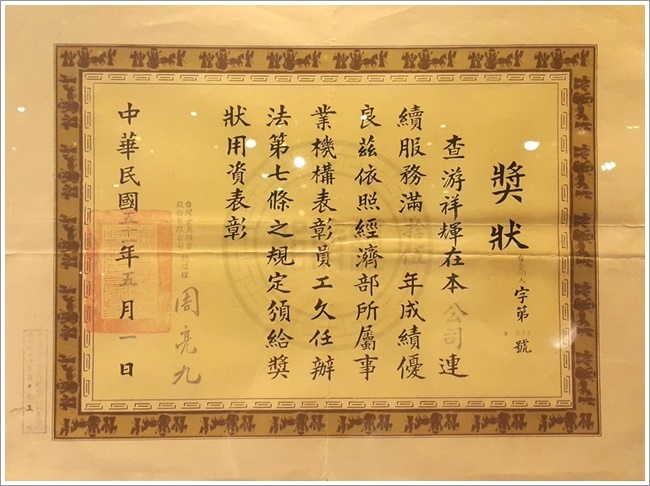 獎狀
字第
號
查游祥輝在本公司連
續服務滿拾伍年成績優
良茲依照經濟部所屬事
業機構表彰員工久任辦
法第七條之規定頒給獎
狀用資表彰
周亮九
中華民國五十一年五月一日